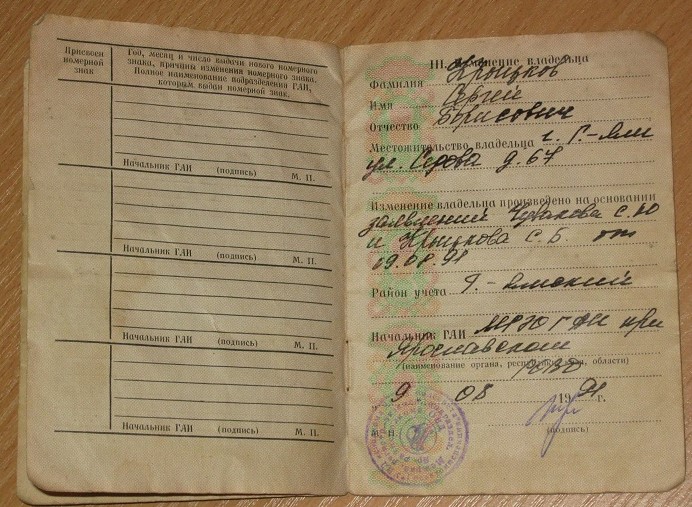 Присвоен
номерной
знак
Год, месяц и число выдачи нового номерного
знака, причины изменения номерного знака.
Полное наименование подразделения ГАИ,
которым выдан номерной знак.
Начальник ГАИ (подпись) М. П.
Начальник ГАИ (подпись) М. П.
Начальник ГАИ (подпись) М. П.
Начальник ГАИ (подпись) М. П.
III. Изменение владельца
Фамилия Крыцков
Имя Сергей
Отчество Борисович
Местожительство владельца г. Г.-Ям
ул. Седова д. 67
Изменение владельца произведено на основании
заявлений С. Ю
и Крыцкова С. Б. от
09.08.91
Район учета Г.-Ямский
Начальник ГАИ МРЭО ГАИ при
Ярославском
(наименование органа, республики, края, области)
9 08 1991 г.
М. П. (подпись)